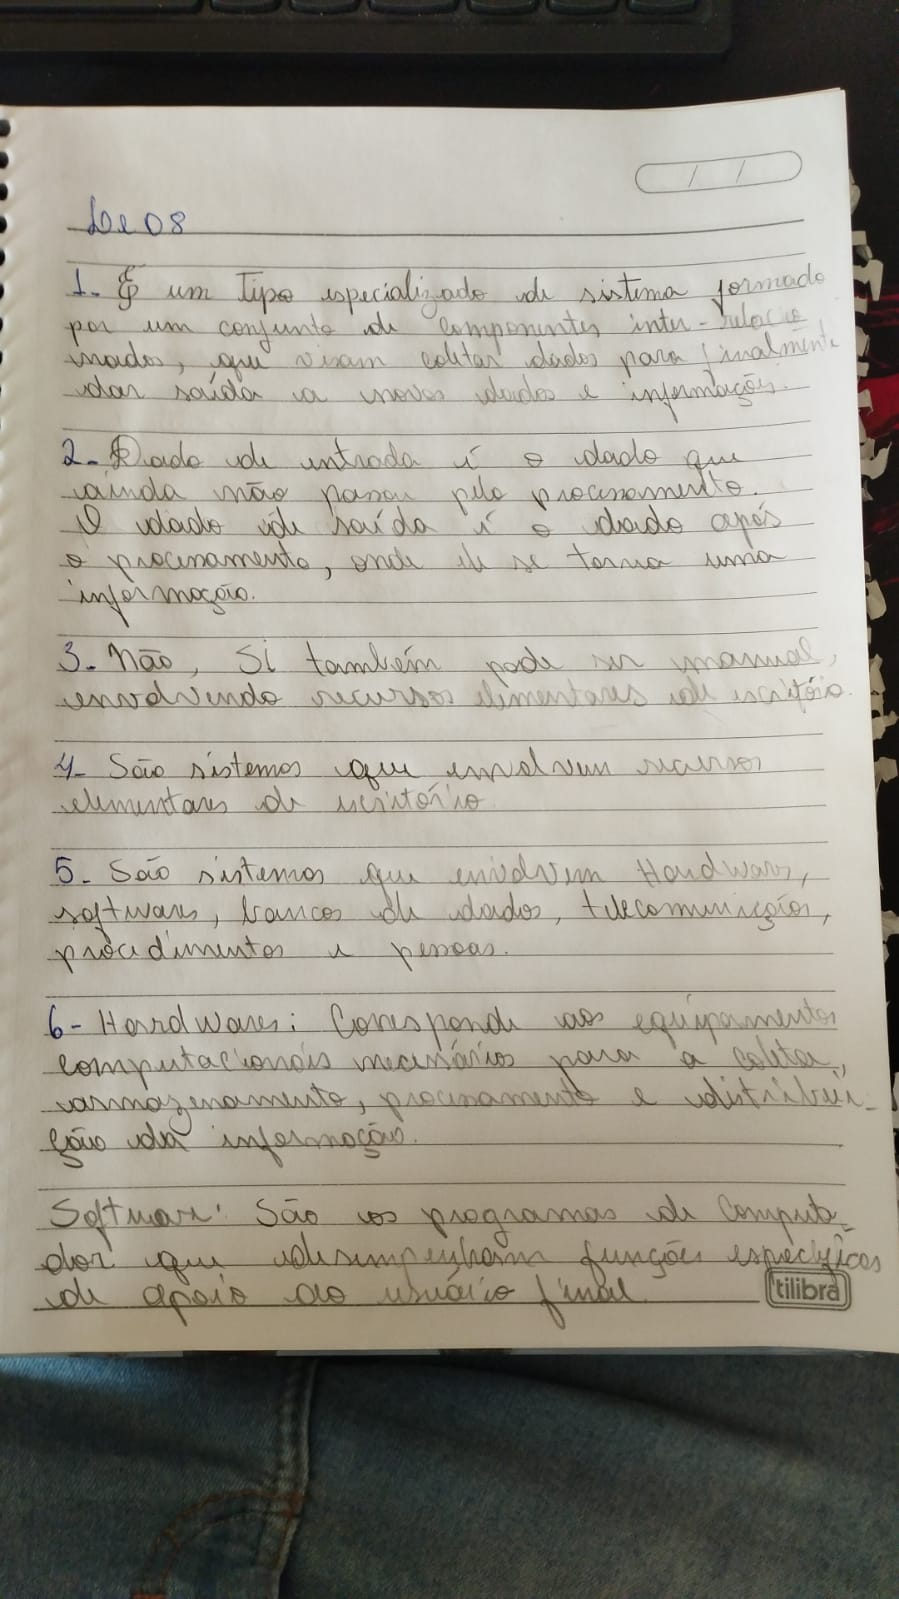 De 08
1. É um Tipo especializado de sistema formado
por um conjunto de componentes, inter-relacio
nados, que visam coletar dados para finalmente
dar saída a novos dados e informações.
2. Dado de entrada é o dado que
ainda não passou pelo processamento.
O dado de saída é o dado após
o processamento, onde ele se torna uma
informação.
3. Não, SI também pode ser manual,
envolvendo recursos elementares de escritório.
4- São sistemas que envolvem recursos
elementares de escritório
5. São sistemas que envolvem Hardwares,
softwares, bancos de dados, telecomunicações,
procedimentos e pessoas.
6- Hardwares: Corresponde aos equipamentos
computacionais necessários para a coleta,
armazenamento, processamento e distribui-
ção da informação.
Software: São os programas de Computa-
dor que desempenham funções específicas
de apoio ao usuário final.
tilibra